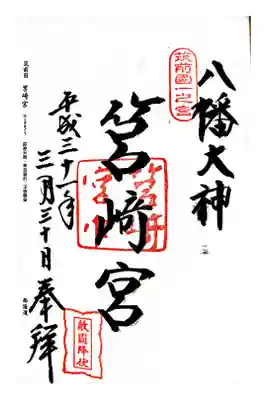 八幡大神
筑前國一之宮
筥崎宮
平成三十一年
三月三十日奉拜
敵國降伏
筑前國 筥崎宮